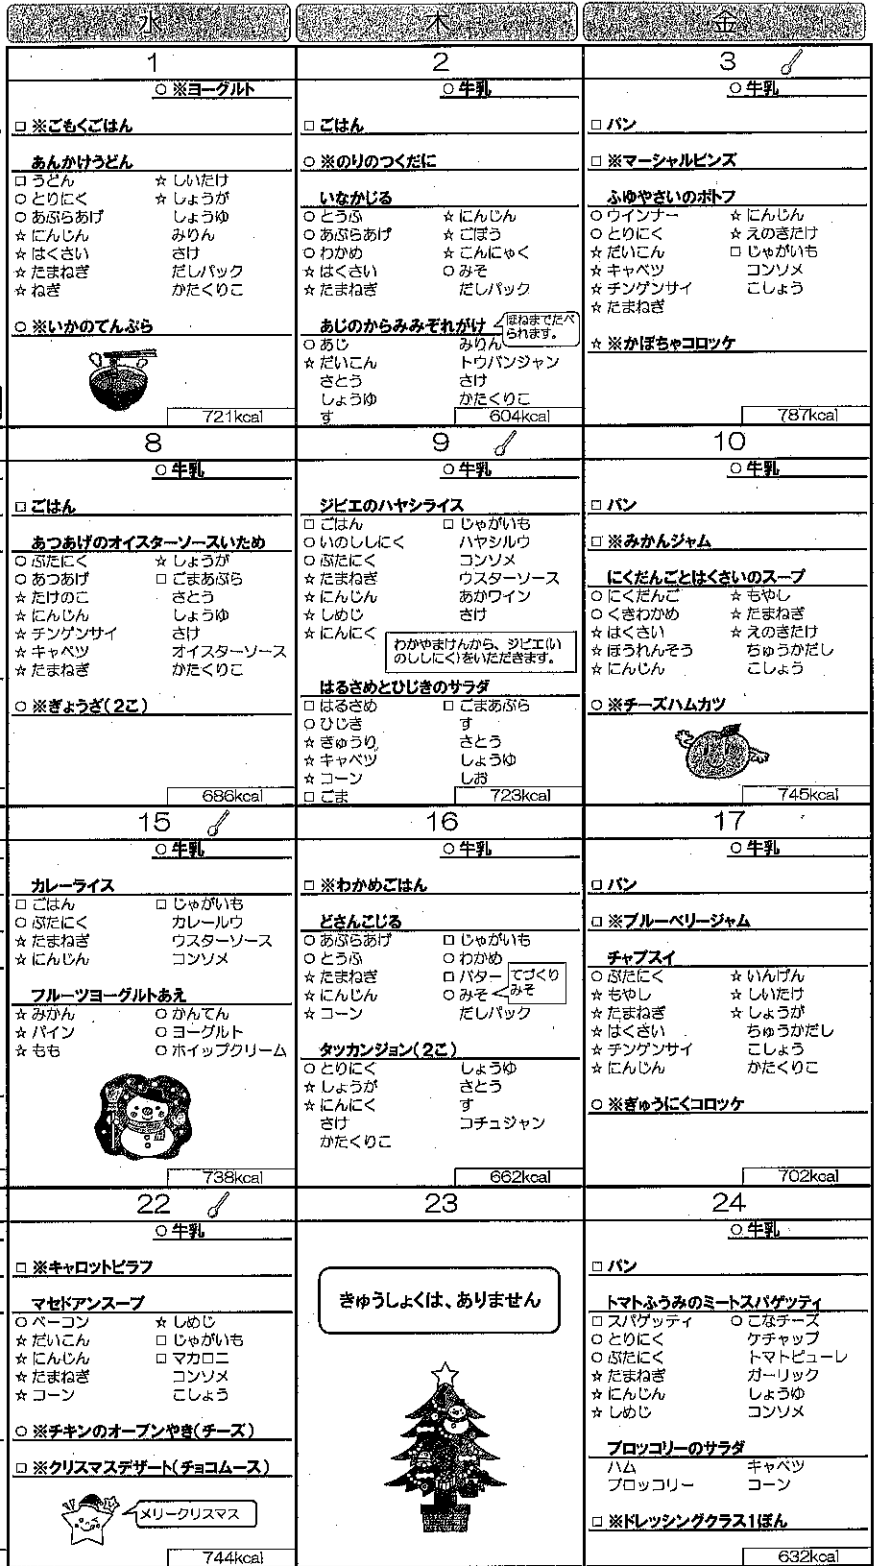 水 木 金
1
○ ※ヨーグルト
□ ※ごもくごはん
あんかけうどん
□ うどん ☆ しいたけ
○ とりにく ☆ しょうが
○ あぶらあげ しょうゆ
☆ にんじん みりん
☆ はくさい さけ
☆ たまねぎ だしパック
☆ ねぎ かたくりこ
○ ※いかのてんぷら
721kcal
2
○ 牛乳
□ ごはん
○ ※のりのつくだに
いなかじる
○ とうふ ☆ にんじん
○ あぶらあげ ☆ ごぼう
○ わかめ ☆ こんにゃく
☆ はくさい ○ みそ
☆ たまねぎ だしパック
あじのからみみぞれがけ
ほねまでたべ
られます。
○ あじ みりん
☆ だいこん トウバンジャン
さとう さけ
しょうゆ かたくりこ
す
604kcal
3
○ 牛乳
□ パン
□ ※マーシャルビンズ
ふゆやさいのポトフ
○ ウインナー ☆ にんじん
○ とりにく ☆ えのきたけ
☆ だいこん □ じゃがいも
☆ キャベツ コンソメ
☆ チンゲンサイ こしょう
☆ たまねぎ
☆ ※かぼちゃコロッケ
787kcal
8
○ 牛乳
□ ごはん
あつあげのオイスターソースいため
○ ぶたにく ☆ しょうが
○ あつあげ □ ごまあぶら
☆ たけのこ さとう
☆ にんじん しょうゆ
☆ チンゲンサイ さけ
☆ キャベツ オイスターソース
☆ たまねぎ かたくりこ
○ ※ぎょうざ(2こ)
686kcal
9
○ 牛乳
ジビエのハヤシライス
□ ごはん □ じゃがいも
○ いのししにく ハヤシルウ
○ ぶたにく コンソメ
☆ たまねぎ ウスターソース
☆ にんじん あかワイン
☆ しめじ さけ
☆ にんにく
わかやまけんから、ジビエ(い
のししにく)をいただきます。
はるさめとひじきのサラダ
□ はるさめ □ ごまあぶら
○ ひじき す
☆ きゅうり さとう
☆ キャベツ しょうゆ
☆ コーン しお
□ ごま
723kcal
10
○ 牛乳
□ パン
□ ※みかんジャム
にくだんごとはくさいのスープ
○ にくだんご ☆ もやし
○ くきわかめ ☆ たまねぎ
☆ はくさい ☆ えのきたけ
☆ ほうれんそう ちゅうかだし
☆ にんじん こしょう
○ ※チーズハムカツ
745kcal
15
○ 牛乳
カレーライス
□ ごはん □ じゃがいも
○ ぶたにく カレールウ
☆ たまねぎ ウスターソース
☆ にんじん コンソメ
フルーツヨーグルトあえ
☆ みかん ○ かんてん
☆ パイン ○ ヨーグルト
☆ もも ○ ホイップクリーム
738kcal
16
○ 牛乳
□ ※わかめごはん
どさんこじる
○ あぶらあげ □ じゃがいも
○ とうふ ○ わかめ
☆ たまねぎ □ バター
☆ にんじん ○ みそ
☆ コーン だしパック
てづくり
みそ
タッカンジョン(2こ)
○ とりにく しょうゆ
☆ しょうが さとう
☆ にんにく す
さけ コチュジャン
かたくりこ
662kcal
17
○ 牛乳
□ パン
□ ※ブルーベリージャム
チャプスイ
○ ぶたにく ☆ いんげん
☆ もやし ☆ しいたけ
☆ たまねぎ ☆ しょうが
☆ はくさい ちゅうかだし
☆ チンゲンサイ こしょう
☆ にんじん かたくりこ
○ ※ぎゅうにくコロッケ
702kcal
22
○ 牛乳
□ ※キャロットピラフ
マセドアンスープ
○ ベーコン ☆ しめじ
☆ だいこん □ じゃがいも
☆ にんじん □ マカロニ
☆ たまねぎ コンソメ
☆ コーン こしょう
○ ※チキンのオーブンやき(チーズ)
□ ※クリスマスデザート(チョコムース)
メリークリスマス
744kcal
23
きゅうしょくは、ありません
24
○ 牛乳
□ パン
トマトふうみのミートスパゲッティ
□ スパゲッティ ○ こなチーズ
○ とりにく ケチャップ
○ ぶたにく トマトピューレ
☆ たまねぎ ガーリック
☆ にんじん しょうゆ
☆ しめじ コンソメ
ブロッコリーのサラダ
ハム キャベツ
ブロッコリー コーン
□ ※ドレッシングクラス1ぽん
632kcal